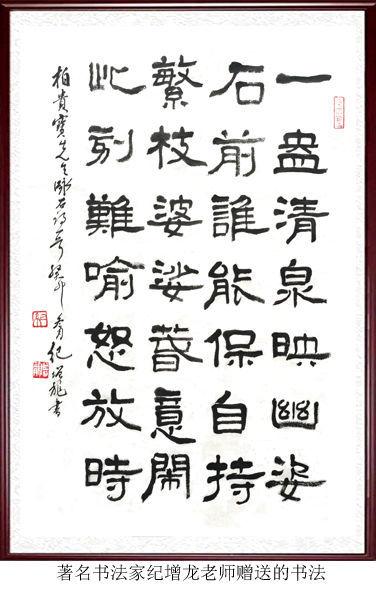 一盎清泉映幽姿
石前誰能保自持
繁枝婆娑春意閑
此刻難喻怒放時
柏貴寶先生咏石詩 癸卯 紀增龍書
著名书法家纪增龙老师赠送的书法